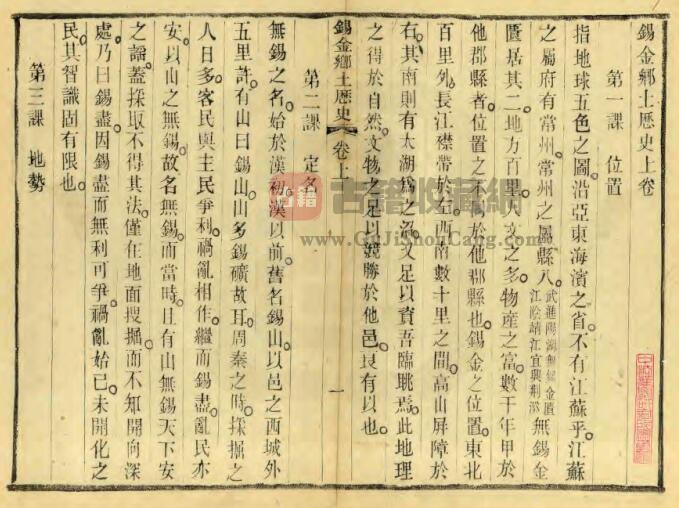 錫金鄉土歷史上卷
第一課 位置
指地球五色之圖沿亞東海濱之省不有江蘇乎江蘇
之屬府有常州常州之屬縣八武進陽湖無錫金匱江陰靖江宜興荆溪無錫金
匱居其二地方百里人文之多物産之富數千年甲於
他郡縣者位置之不同於他郡縣也錫金之位置東北
百里外長江襟帶於左西南數十里之間高山屏障於
右其南則有太湖爲之瀦又足以資吾臨眺焉此地理
之得於自然文物之足以競勝於他邑良有以也
錫金鄉土歷史 卷上 一
第二課 定名
無錫之名始於漢初漢以前舊名錫山以邑之西城外
五里許有山曰錫山山多錫礦故耳周秦之時採掘之
人日多客民與主民爭利禍亂相作繼而錫盡亂民亦
安以山之無錫故名無錫而當時且有山無錫天下安
之謡蓋採取不得其法僅在地面搜掘而不知開向深
處乃曰錫盡因錫盡而無利可爭禍亂始已未開化之
民其智識固有限也
第三課 地勢
古籍
古籍收藏網
www.GuJiShouCang.com